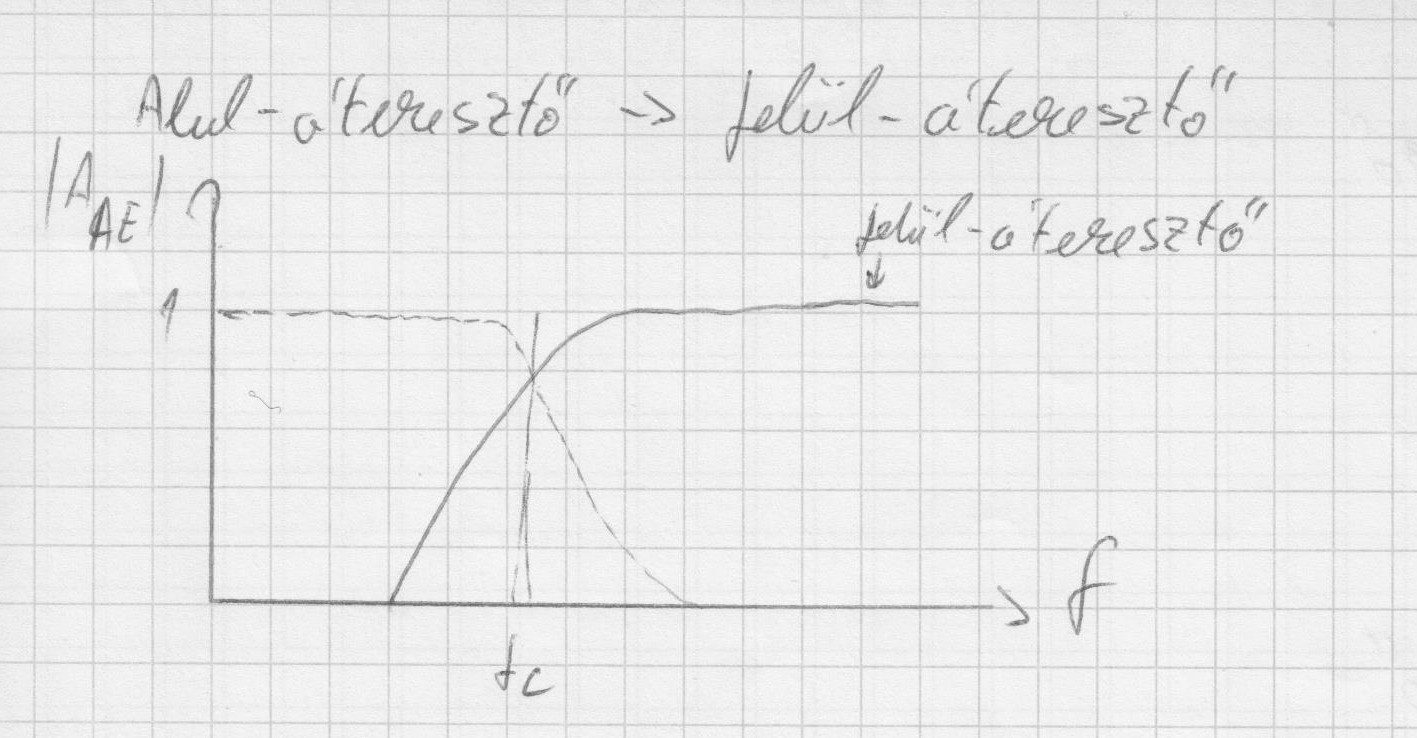 Alul-áteresztő -> felül-áteresztő
|A_AE|
felül-áteresztő
1
f
fc